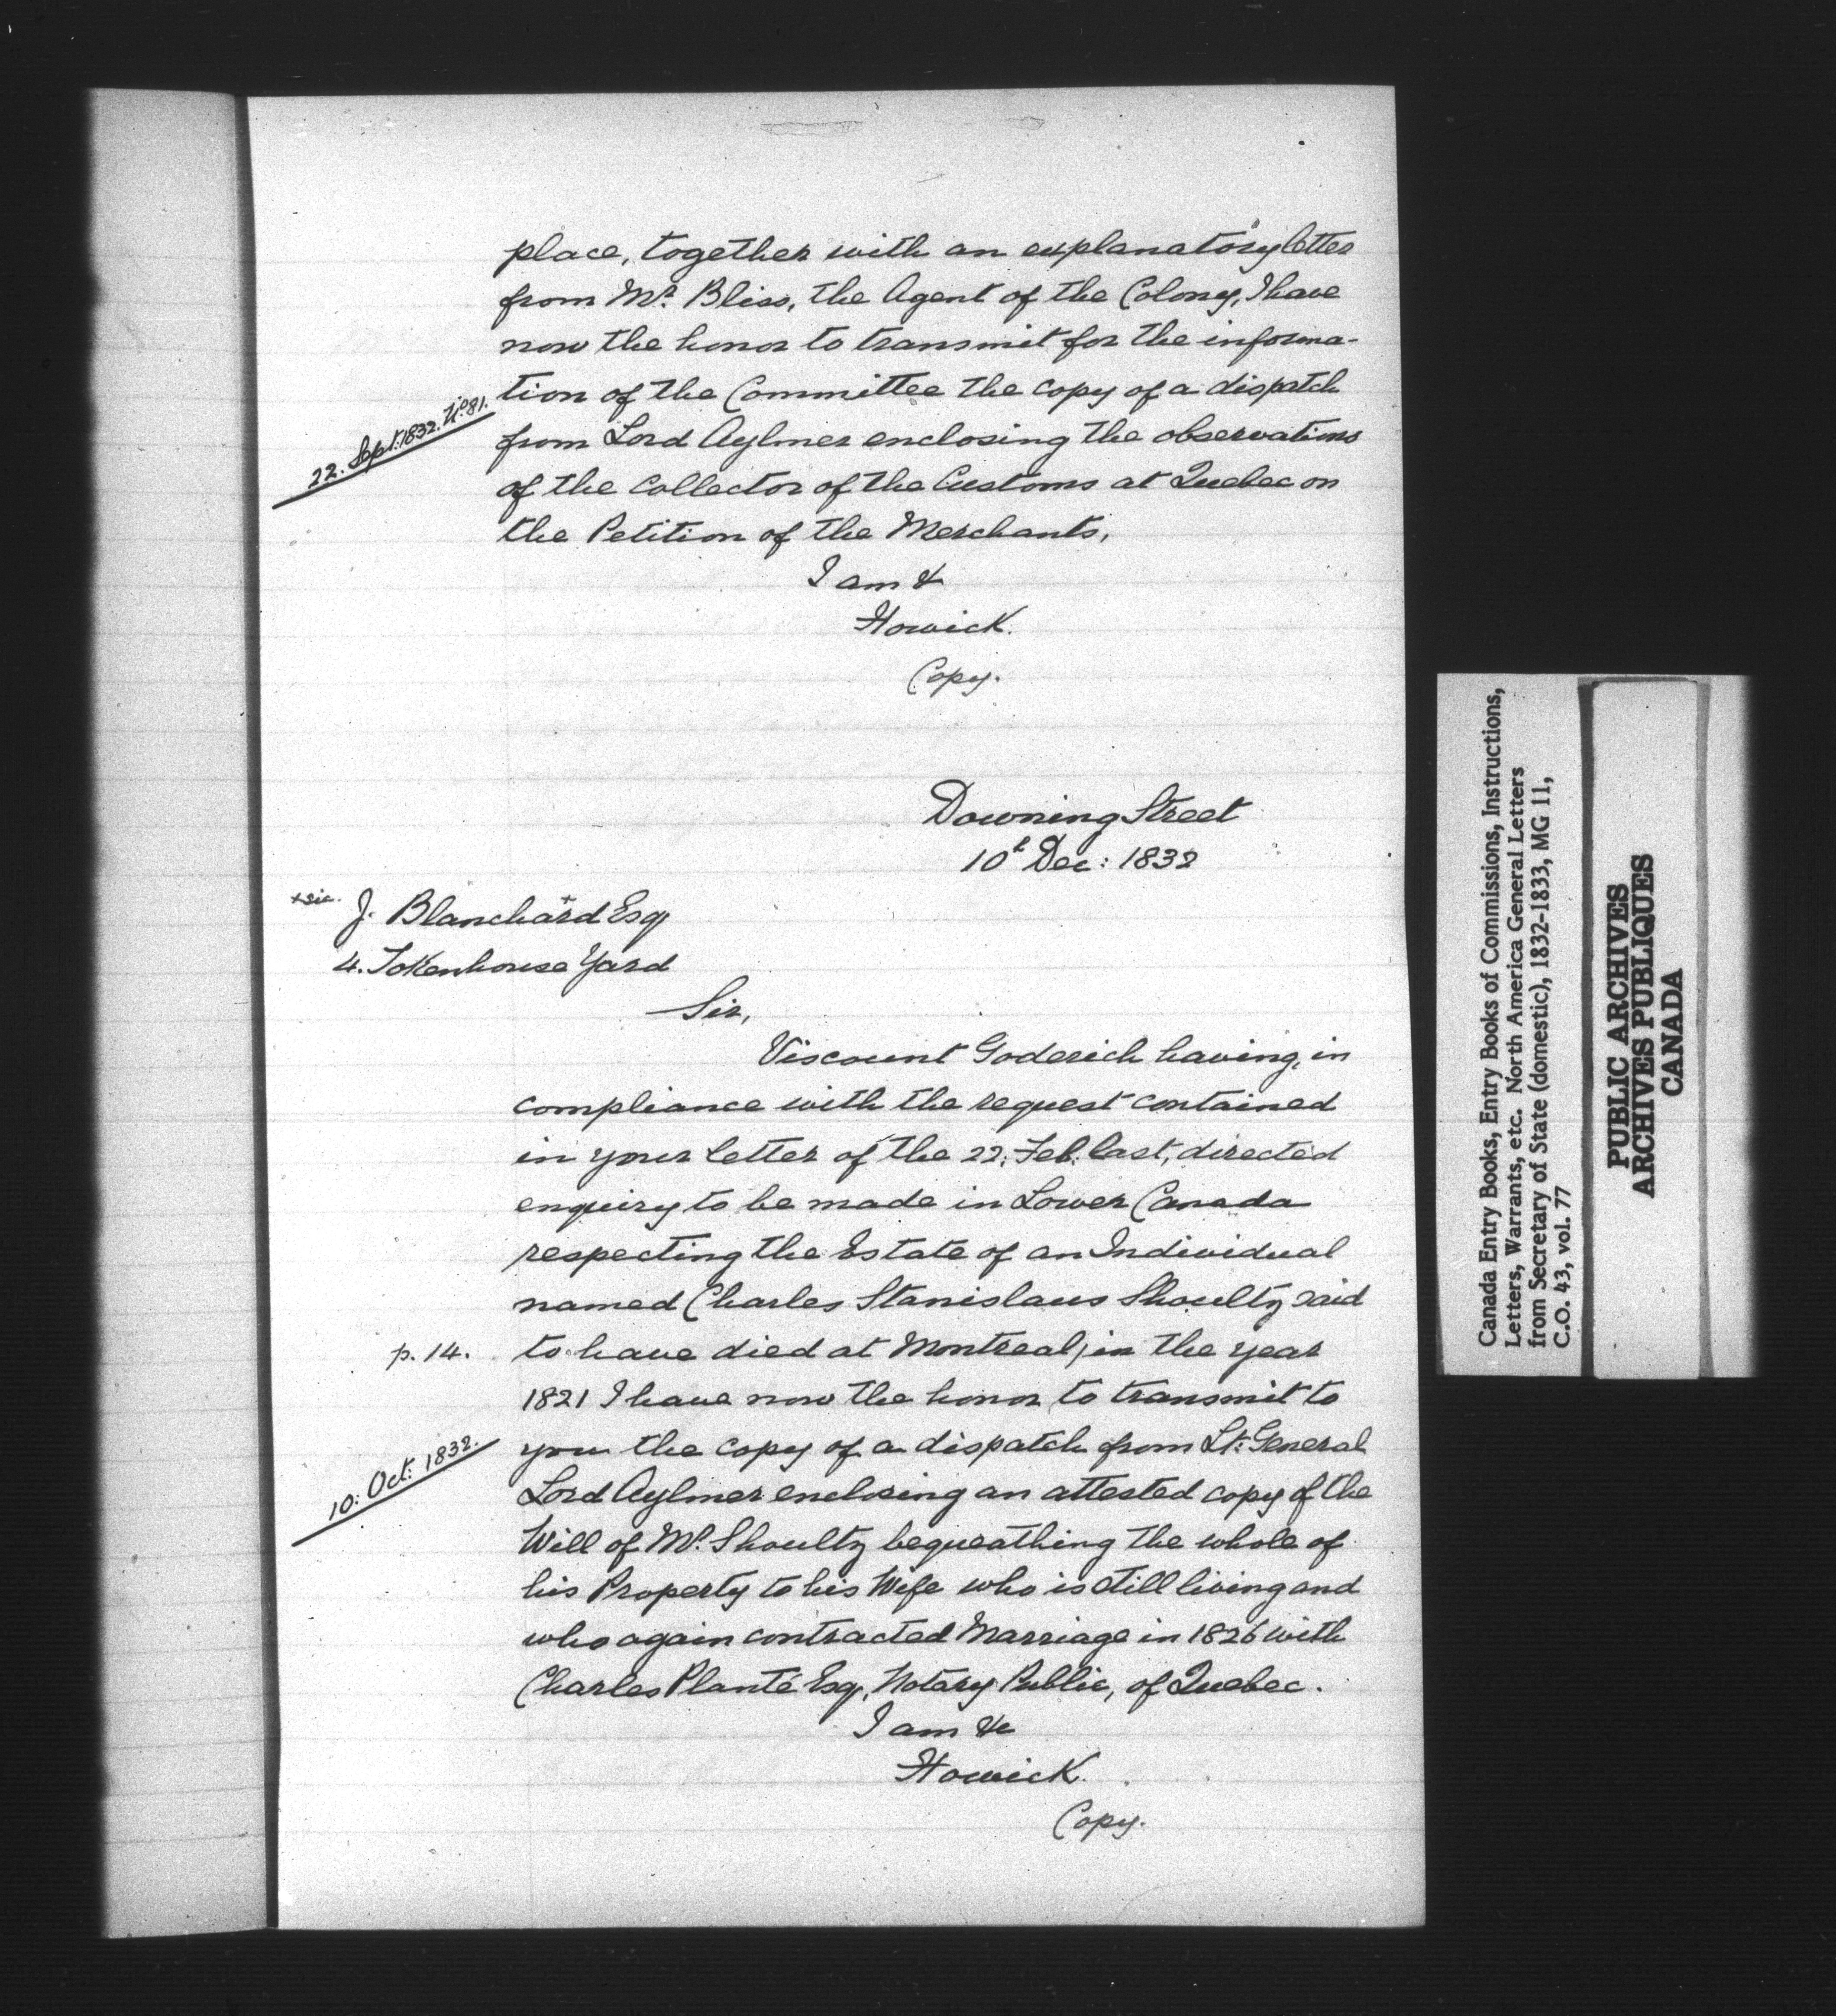 place, together with an explanatory letter
from Mr. Bliss, the Agent of the Colony, I have
now the honor to transmit for the informa-
tion of the Committee the copy of a dispatch
22. Sept: 1832. No. 81.
from Lord Aylmer enclosing the observations
of the Collector of the Customs at Quebec on
the Petition of the Merchants,
I am &
Howick.
Copy.
Downing Street
10th Dec: 1832
+sic. J. Blanchard+ Esq
4. Tokenhouse Yard
Sir,
Viscount Goderich having, in
compliance with the request contained
in your letter of the 22. Feb. last, directed
enquiry to be made in Lower Canada
respecting the Estate of an Individual
named Charles Stanislaus Shoultz said
p. 14. to have died at Montreal, in the year
1821 I have now the honor to transmit to
you the copy of a dispatch from Lt: General
10: Oct: 1832.
Lord Aylmer enclosing an attested copy of the
Will of Mr. Shoultz bequeathing the whole of
his Property to his Wife who is still living and
who again contracted Marriage in 1826 with
Charles Planté Esq, Notary Public, of Quebec.
I am &c
Howick.
Copy.
Canada Entry Books, Entry Books of Commissions, Instructions,
Letters, Warrants, etc. North America General Letters
from Secretary of State (domestic), 1832-1833, MG 11,
C.O. 43, vol. 77
PUBLIC ARCHIVES
ARCHIVES PUBLIQUES
CANADA